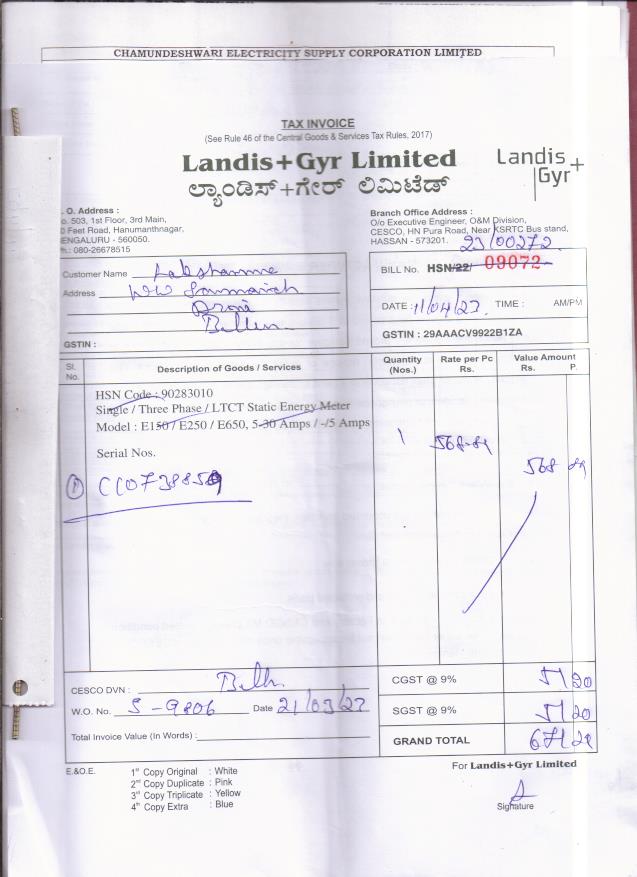 CHAMUNDESHWARI ELECTRICITY SUPPLY CORPORATION LIMITED
TAX INVOICE
(See Rule 46 of the Central Goods & Services Tax Rules, 2017)
Landis+Gyr Limited
Landis+
Gyr
ಲ್ಯಾಂಡಿಸ್+ಗೇರ್ ಲಿಮಿಟೆಡ್
. O. Address :
o. 503, 1st Floor, 3rd Main,
0 Feet Road, Hanumanthnagar,
ENGALURU - 560050.
h.: 080-26678515
Branch Office Address :
O/o Executive Engineer, O&M Division,
CESCO, HN Pura Road, Near KSRTC Bus stand,
HASSAN - 573201.
23/00272
Customer Name
Address
GSTIN :
BILL No. HSN/22/ 09072
DATE : 11/04/23 TIME : AM/PM
GSTIN : 29AAACV9922B1ZA
Sl. No. Description of Goods / Services Quantity (Nos.) Rate per Pc Rs. Value Amount Rs. P.
HSN Code : 90283010
Single / Three Phase / LTCT Static Energy Meter
Model : E150 / E250 / E650, 5-30 Amps / -/5 Amps
1 568-89 568 89
Serial Nos.
① CC0738859
CESCO DVN :
W.O. No. S-9806 Date 21/03/23
Total Invoice Value (In Words) :
CGST @ 9% 51 20
SGST @ 9% 51 20
GRAND TOTAL 671 29
E.&O.E.
1st Copy Original : White
2nd Copy Duplicate : Pink
3rd Copy Triplicate : Yellow
4th Copy Extra : Blue
For Landis+Gyr Limited
Signature